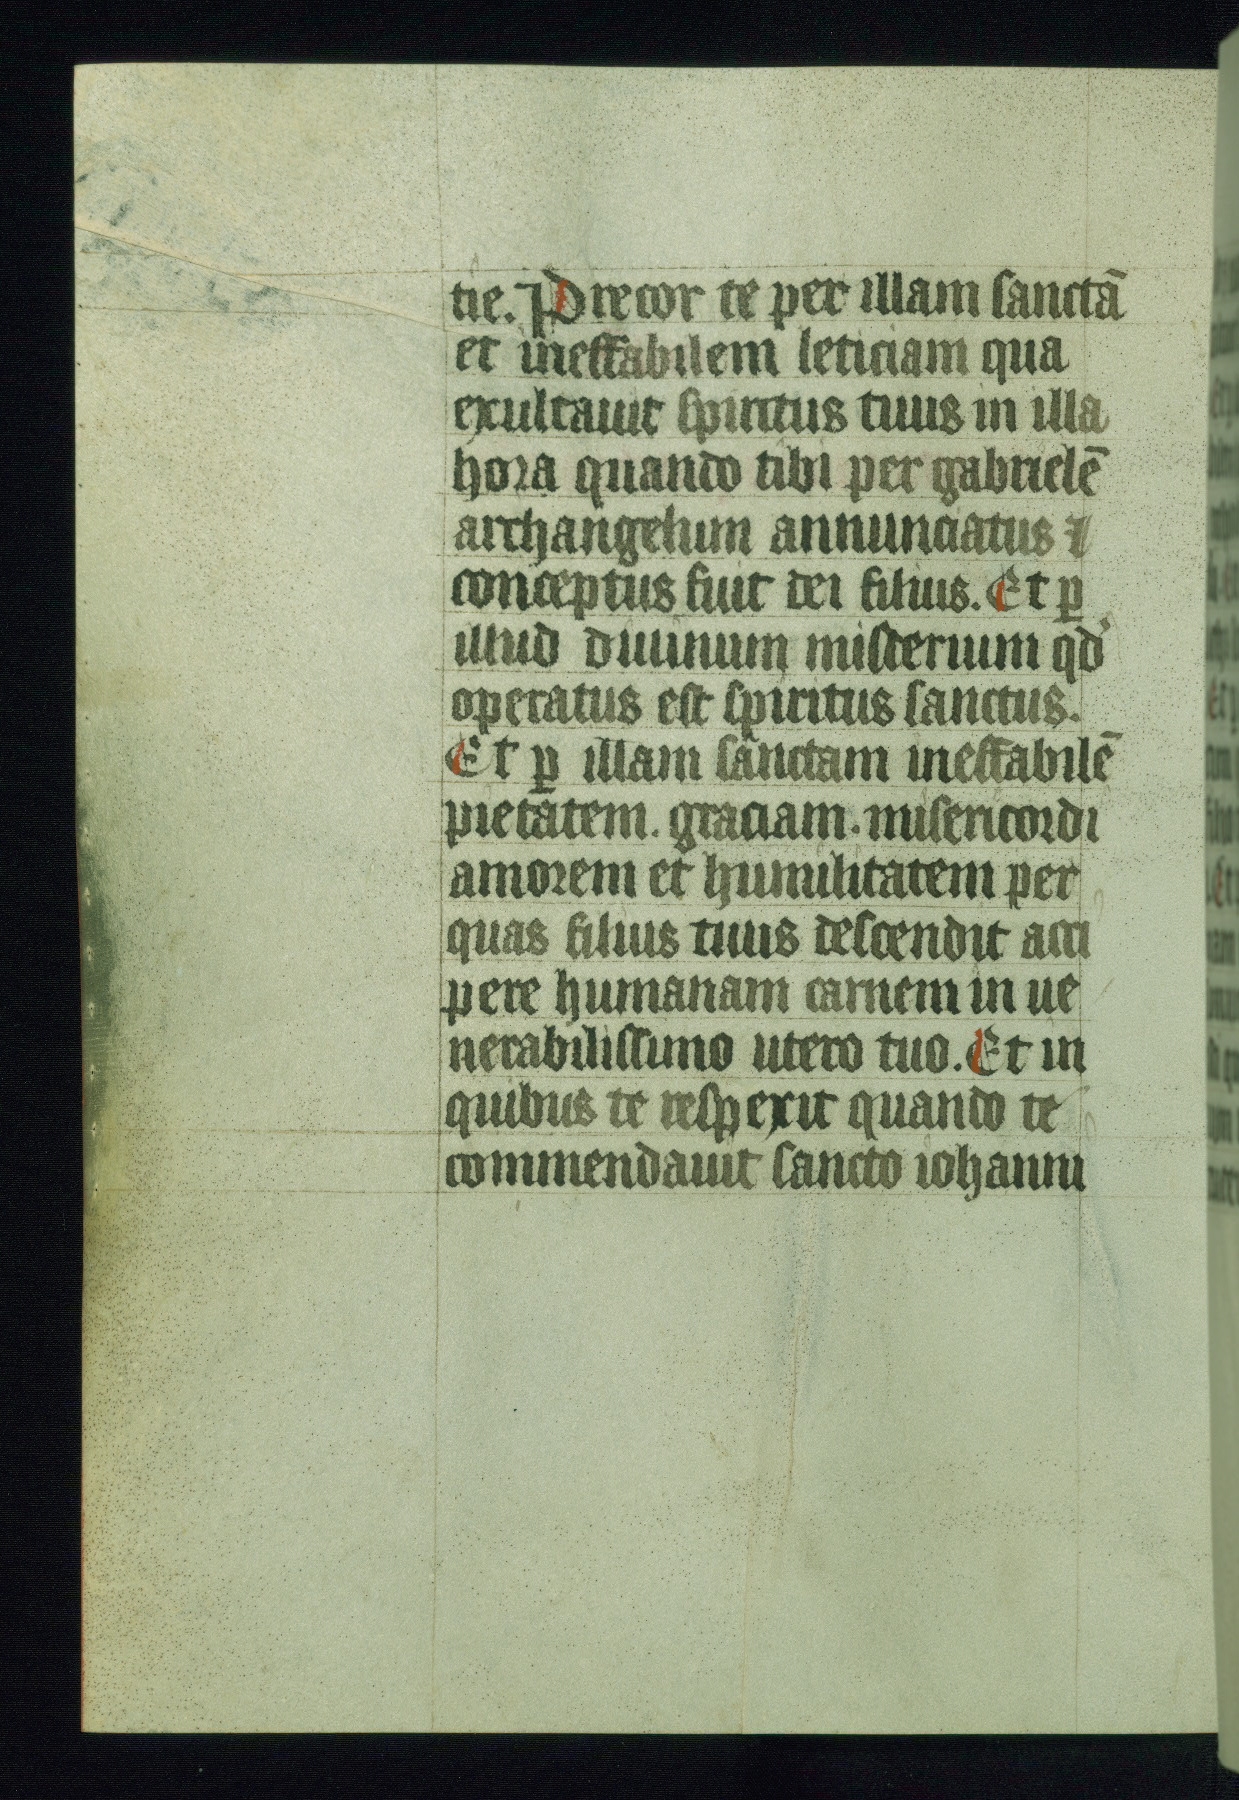 tie. Precor te per illam sanctā
et ineffabilem leticiam qua
exultauit spiritus tuus in illa
hora quando tibi per gabrielē
archangelum annunciatus ⁊
conceptus fuit dei filius. Et ꝑ
illud diuinum misterium qd̛
operatus est spiritus sanctus.
Et ꝑ illam sanctam ineffabilē
pietatem. graciam. misericordi
amorem et humilitatem per
quas filius tuus descendit acci
pere humanam carnem in ue
nerabilissimo utero tuo. Et in
quibus te respexit quando te
commendauit sancto iohanni